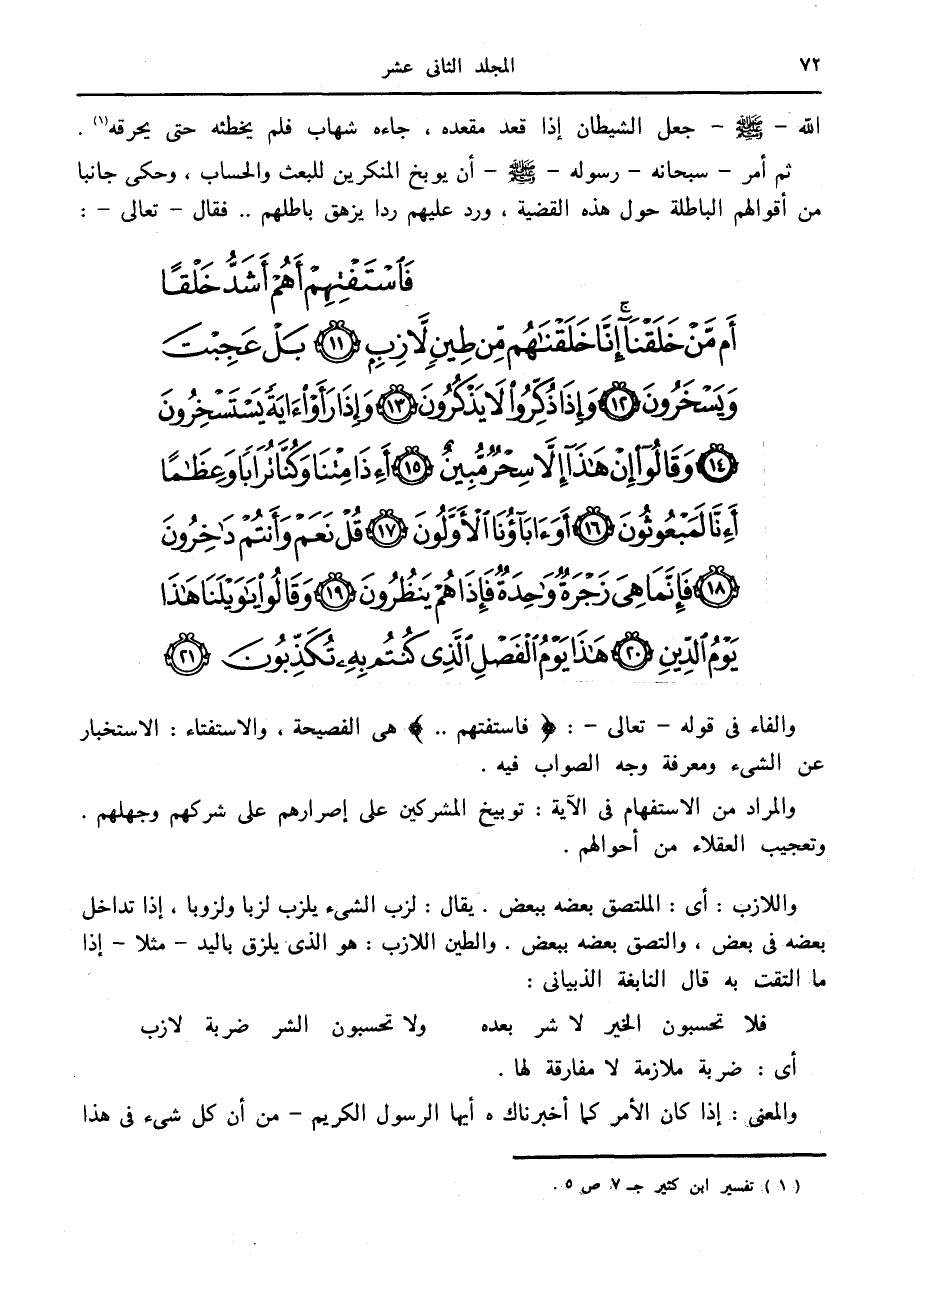 ٧٢ المجلد الثانى عشر
الله – ﷺ – جعل الشيطان إذا قعد مقعده ، جاءه شهاب فلم يخطئه حتى يحرقه(١) .
ثم أمر – سبحانه – رسوله – ﷺ – أن يوبخ المنكرين للبعث والحساب ، وحكى جانبا
من أقوالهم الباطلة حول هذه القضية ، ورد عليهم ردا يزهق باطلهم .. فقال – تعالى – :
فَٱسْتَفْتِهِمْ أَهُمْ أَشَدُّ خَلْقًا
أَم مَّنْ خَلَقْنَآ ۚ إِنَّا خَلَقْنَٰهُم مِّن طِينٍ لَّازِبٍ ﴿١١﴾ بَلْ عَجِبْتَ
وَيَسْخَرُونَ ﴿١٢﴾ وَإِذَا ذُكِّرُوا۟ لَا يَذْكُرُونَ ﴿١٣﴾ وَإِذَا رَأَوْا۟ ءَايَةً يَسْتَسْخِرُونَ
﴿١٤﴾ وَقَالُوٓا۟ إِنْ هَٰذَآ إِلَّا سِحْرٌ مُّبِينٌ ﴿١٥﴾ أَءِذَا مِتْنَا وَكُنَّا تُرَابًا وَعِظَٰمًا
أَءِنَّا لَمَبْعُوثُونَ ﴿١٦﴾ أَوَءَابَآؤُنَا ٱلْأَوَّلُونَ ﴿١٧﴾ قُلْ نَعَمْ وَأَنتُمْ دَٰخِرُونَ
﴿١٨﴾ فَإِنَّمَا هِىَ زَجْرَةٌ وَٰحِدَةٌ فَإِذَا هُمْ يَنظُرُونَ ﴿١٩﴾ وَقَالُوا۟ يَٰوَيْلَنَا هَٰذَا
يَوْمُ ٱلدِّينِ ﴿٢٠﴾ هَٰذَا يَوْمُ ٱلْفَصْلِ ٱلَّذِى كُنتُم بِهِۦ تُكَذِّبُونَ ﴿٢١﴾
والفاء فى قوله – تعالى – : ﴿ فاستفتهم .. ﴾ هى الفصيحة ، والاستفتاء : الاستخبار
عن الشىء ومعرفة وجه الصواب فيه .
والمراد من الاستفهام فى الآية : توبيخ المشركين على إصرارهم على شركهم وجهلهم .
وتعجيب العقلاء من أحوالهم .
واللازب : أى : الملتصق بعضه ببعض . يقال : لزب الشىء يلزب لزبا ولزوبا ، إذا تداخل
بعضه فى بعض ، والتصق بعضه ببعض . والطين اللازب : هو الذى يلزق باليد – مثلا – إذا
ما التقت به قال النابغة الذبيانى :
فلا تحسبون الخير لا شر بعده ولا تحسبون الشر ضربة لازب
أى : ضربة ملازمة لا مفارقة لها .
والمعنى : إذا كان الأمر كما أخبرناك ه أيها الرسول الكريم – من أن كل شىء فى هذا
( ١ ) تفسير ابن كثير جـ ٧ ص ٥ .